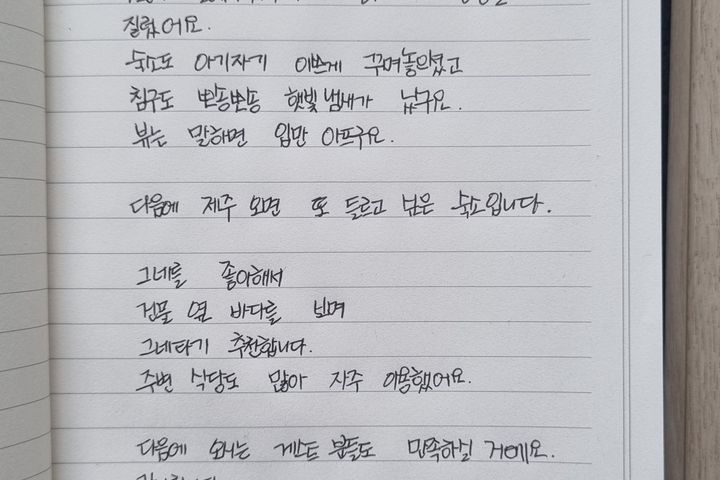 질렀어요.
숙소도 아기자기 이쁘게 꾸며놓으셨고
침구도 뽀송뽀송 햇빛냄새가 났구요.
뷰는 말하면 입만 아프구요.
다음에 제주 오면 또 들르고 싶은 숙소입니다.
그네를 좋아해서
건물 옆 바다를 보며
그네타기 추천합니다.
주변 식당도 많아 자주 이용했어요.
다음에 오시는 게스트분들도 만족하실 거에요.